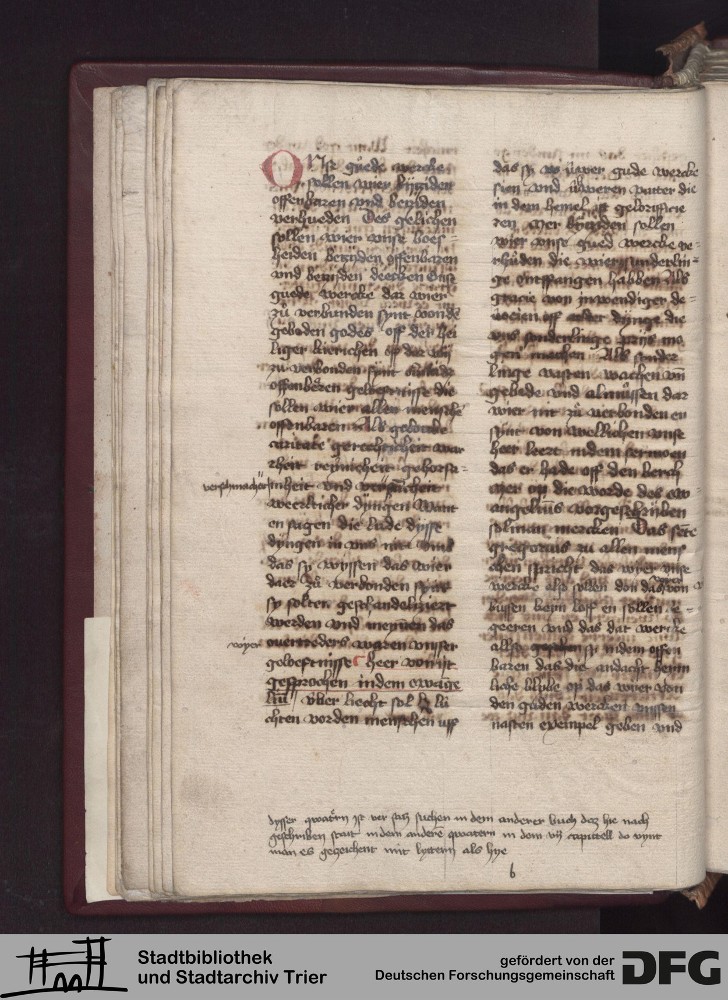 Onse guede wercke
sollen wier bijziden
offenbaren vnd beziden
verhueden Des gelichen
sollen wier vnse boes-
heiden beziden offenbaren
vnd beziden decken
guede wercke dar wier
zů verbunden synt vonde
geboden godes off der hei
liger kierichen
zu verbonden synt
offenberen geloefnisse die
sollen wier allen mensche
offenbaren Als geloube
caritate gerechticheit war
heit reynicheit gehorsa-
mheit vnd
weerlicher dyngen Want
en sagen die lude dysse
dyngen in vns nit vnd
das sy wyssen das wier
daer zů verbonden synt
sy solten geschandeliziert
werden vnd meynen das
ouertreders waren vnser
geloefnisse heer vonijt
gesprochen indem ewage
liu vwer liecht sol lu
chten vorden menschen uff
das sy uwer gude wercke
sien vnd uweren vatter die
in dem hemel ist glorificie
ren wer bijziden sollen
wier vnse gued wercke ve-
rhuden die wier sunderlin-
ge entffangen habben Als
gracie von inwendiger de-
uocien off ander dynge die
vns sonderlinge prijs mo
gen machen Als sonder
linge vasten wachen vn
gebede vnd almussen dar
wier nit zů verbonden en
synt von wellichen vnse
heer leert indem sermoen
das er hade off den berch
Mer op die worde des ew
angelius vorgeschriben
solman mercken Das sente
gregorius zu allen mens
chen spricht das wier vnse
wercke also sollen don das von
bussen beym loff en sollen be-
geeren vnd das dat wercke
also sy indem offen
baren das die andacht heim
liche blybe op das wier von
den guden wercken vnssen
nasten exempel geben vnd
verschmacher
dysser qwatern ist suchen in dem anderen buch daz hie nach
geschriben stait indem andere qwatern in dem vij capittell do vynt
man es gezeichent mit lyttern als hye
b
Stadtbibliothek
und Stadtarchiv Trier
gefördert von der
Deutschen Forschungsgemeinschaft
DFG